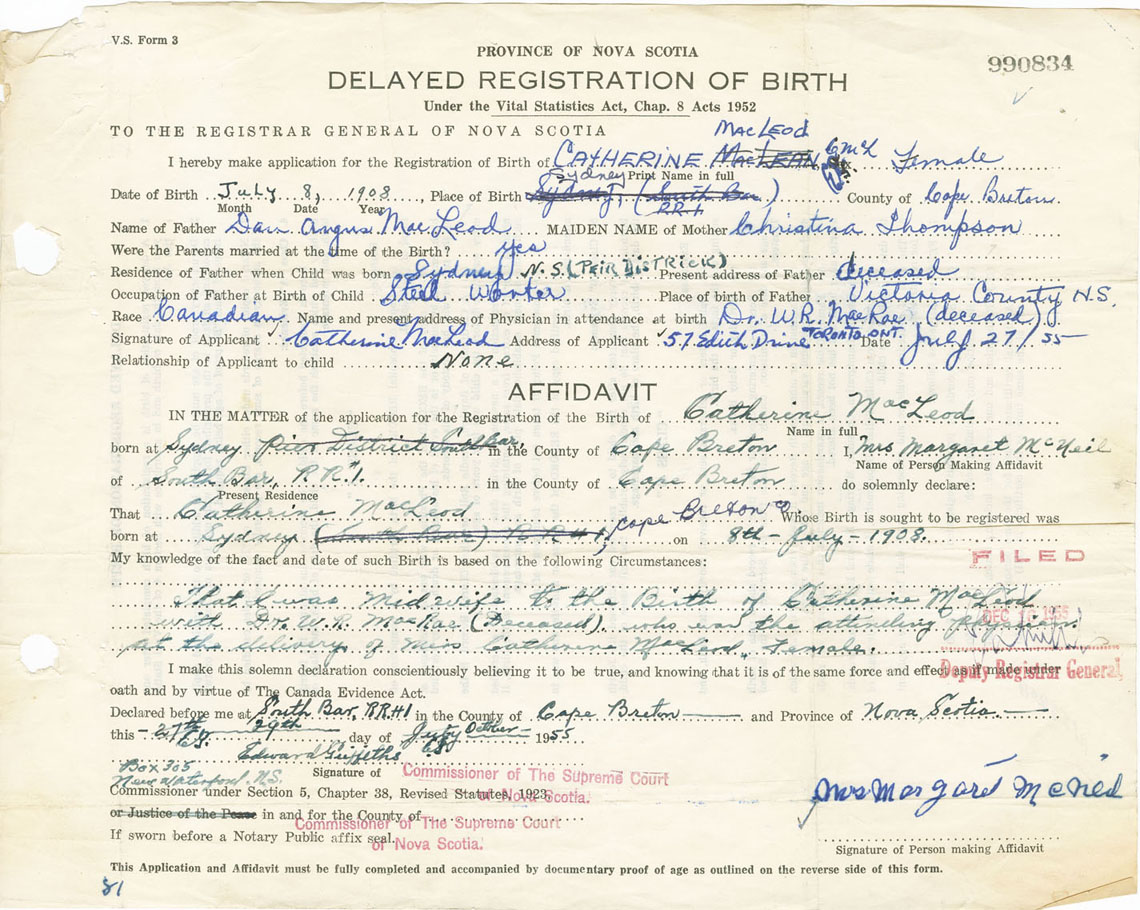 V.S. Form 3
PROVINCE OF NOVA SCOTIA
990834
DELAYED REGISTRATION OF BIRTH
Under the Vital Statistics Act, Chap. 8 Acts 1952
TO THE REGISTRAR GENERAL OF NOVA SCOTIA
MACLEOD
I hereby make application for the Registration of Birth of CATHERINE MACLEAN CMcL Female
Sydney Print Name in full
Date of Birth July 8, 1908, Place of Birth Sydney, (South Bar) County of Cape Breton
Month Date Year RR1
Name of Father Dan Angus MacLeod MAIDEN NAME of Mother Christina Thompson
Were the Parents married at the time of the Birth? yes
Residence of Father when Child was born Sydney N.S. (PEIR DISTRICK) Present address of Father deceased
Occupation of Father at Birth of Child Steel Worker Place of birth of Father Victoria County N.S.
Race Canadian Name and present address of Physician in attendance at birth Dr. W.R. MacRae (deceased)
Signature of Applicant Catherine MacLeod Address of Applicant 57 Edith Drive TORONTO ONT. Date July 27/55
Relationship of Applicant to child None
AFFIDAVIT
IN THE MATTER of the application for the Registration of the Birth of Catherine MacLeod
Name in full
born at Sydney Pier District South Bar, in the County of Cape Breton I, Mrs Margaret McNeil
Name of Person Making Affidavit
of South Bar, RR#1. in the County of Cape Breton do solemnly declare:
Present Residence
That Catherine MacLeod Cape Breton Co. Whose Birth is sought to be registered was
born at Sydney (South Bar) RR#1, on 8th - July - 1908.
My knowledge of the fact and date of such Birth is based on the following Circumstances:
FILED
That I was Midwife to the Birth of Catherine MacLeod
with Dr. W.R. MacRae (Deceased) who was the attending Physician
DEC 1955
at the delivery of Miss Catherine MacLeod, Female.
I make this solemn declaration conscientiously believing it to be true, and knowing that it is of the same force and effect as if made under
Deputy Registrar General,
oath and by virtue of The Canada Evidence Act.
Declared before me at South Bar, RR#1 in the County of Cape Breton and Province of Nova Scotia
this 27th 29th day of July October 1955
Edward Griffiths
Box 305
New Waterford, N.S.
Signature of Commissioner of The Supreme Court
of Nova Scotia.
Commissioner under Section 5, Chapter 38, Revised Statutes, 1923
Mrs Margaret McNeil
or Justice of the Peace in and for the County of
Commissioner of The Supreme Court
of Nova Scotia.
If sworn before a Notary Public affix seal.
Signature of Person making Affidavit
This Application and Affidavit must be fully completed and accompanied by documentary proof of age as outlined on the reverse side of this form.
81